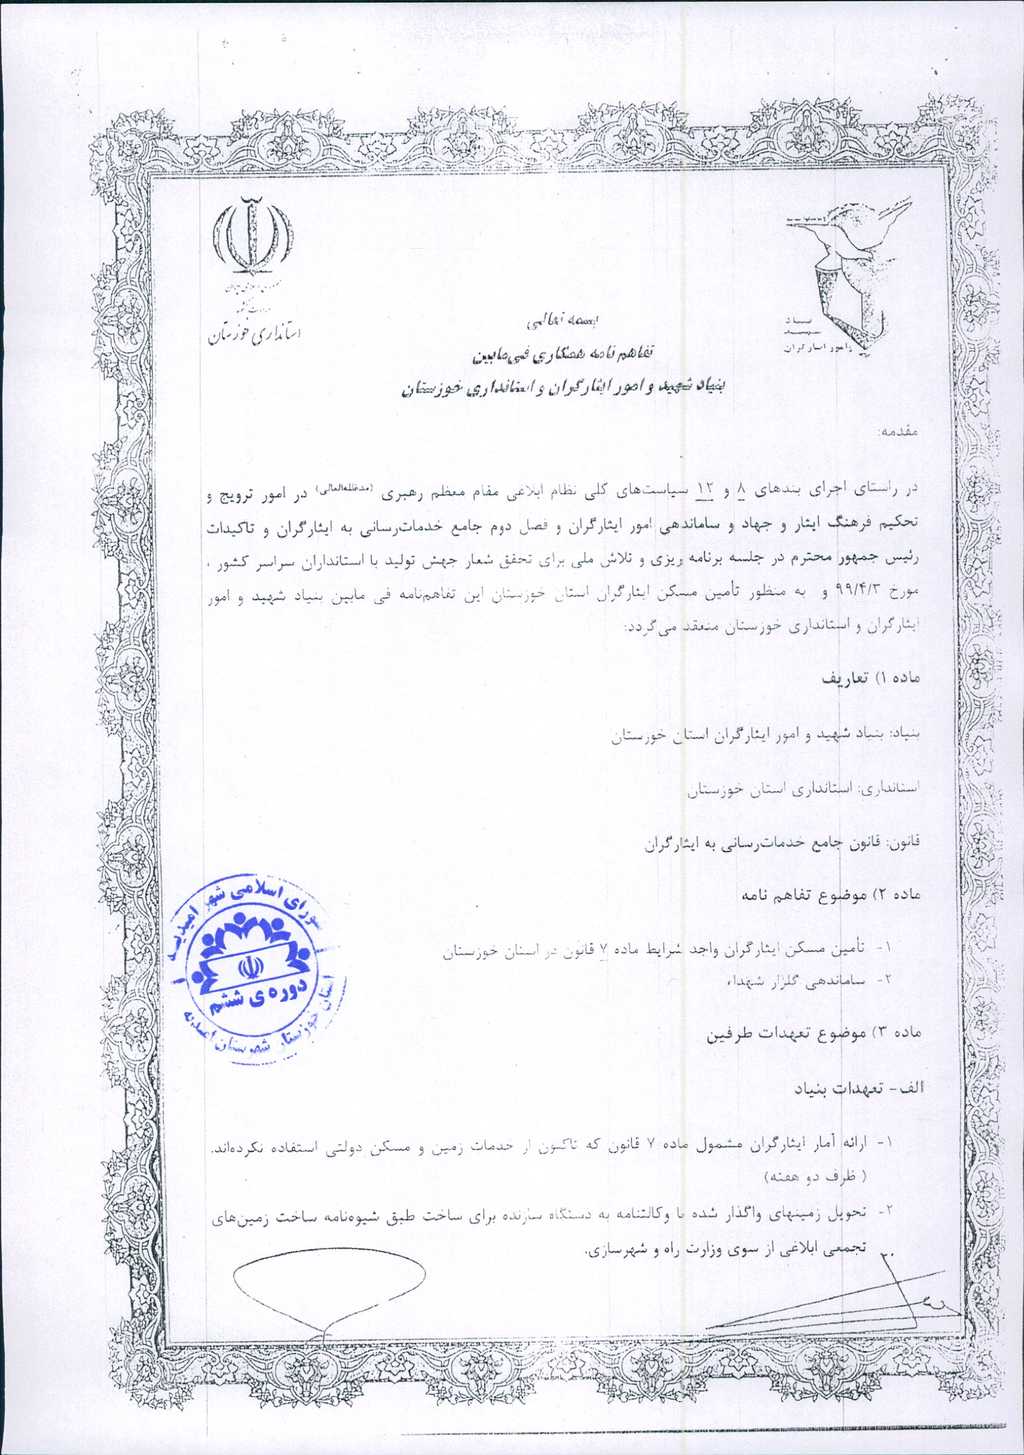 جمهوری اسلامی ایران
وزارت کشور
استانداری خوزستان
بنیاد
شهید
و امور ایثارگران
بسمه تعالی
تفاهم نامه همکاری فی‌مابین
بنیاد شهید و امور ایثارگران و استانداری خوزستان
مقدمه:
در راستای اجرای بندهای ۸ و ۱۲ سیاست‌های کلی نظام ابلاغی مقام معظم رهبری (مدظله‌العالی) در امور ترویج و
تحکیم فرهنگ ایثار و جهاد و ساماندهی امور ایثارگران و فصل دوم جامع خدمات‌رسانی به ایثارگران و تاکیدات
رئیس جمهور محترم در جلسه برنامه ریزی و تلاش ملی برای تحقق شعار جهش تولید با استانداران سراسر کشور ،
مورخ ۹۹/۴/۳ و به منظور تأمین مسکن ایثارگران استان خوزستان این تفاهم‌نامه فی مابین بنیاد شهید و امور
ایثارگران و استانداری خوزستان منعقد می‌گردد:
ماده ۱) تعاریف
بنیاد: بنیاد شهید و امور ایثارگران استان خوزستان
استانداری: استانداری استان خوزستان
قانون: قانون جامع خدمات‌رسانی به ایثارگران
ماده ۲) موضوع تفاهم نامه
۱- تأمین مسکن ایثارگران واجد شرایط ماده ۷ قانون در استان خوزستان
۲- ساماندهی گلزار شهداء
ماده ۳) موضوع تعهدات طرفین
الف- تعهدات بنیاد
۱- ارائه آمار ایثارگران مشمول ماده ۷ قانون که تاکنون از خدمات زمین و مسکن دولتی استفاده نکرده‌اند.
( ظرف دو هفته)
۲- تحویل زمینهای واگذار شده با وکالتنامه به دستگاه سازنده برای ساخت طبق شیوه‌نامه ساخت زمین‌های
تجمعی ابلاغی از سوی وزارت راه و شهرسازی.
شورای اسلامی شهر امیدیه
دوره ی ششم
استان خوزستان شهرستان امیدیه